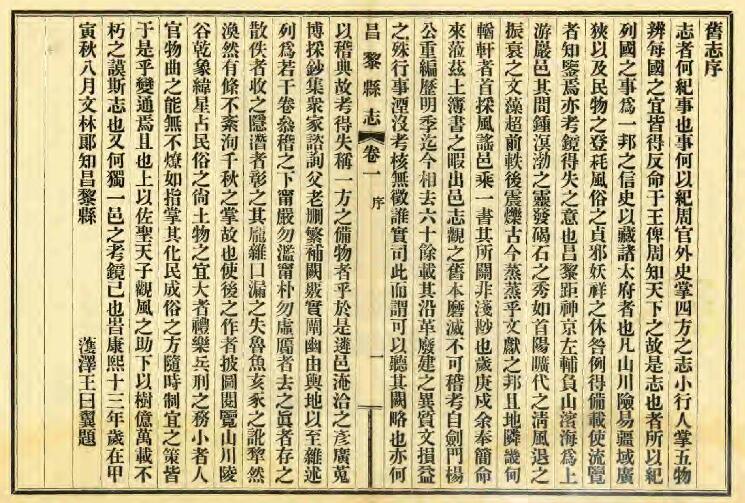 舊志序
志者何紀事也事何以紀周官外史掌四方之志小行人掌五物
辨每國之宜皆得反命于王俾周知天下之故是志也者所以紀
列國之事為一邦之信史以藏諸太府者也凡山川險易疆域廣
狹以及民物之登耗風俗之貞邪妖祥之休咎例得備載使流覽
者知鑒焉亦考鏡得失之意也昌黎距神京左輔負山濱海為上
游嚴邑其間鍾溟渤之靈發碣石之秀如首陽曠代之淸風退之
振衰之文藻超前軼後震爍古今蒸蒸乎文獻之邦且地隣畿甸
輶軒者首採風謠邑乘一書其所關非淺尠也歲庚戌余奉簡命
來蒞茲土簿書之暇出邑志觀之舊本磨滅不可稽考自劍門楊
公重編歷明季迄今相去六十餘載其沿革廢建之異質文損益
之殊行事湮沒考核無徵誰實司此而謂可以聽其闕略也亦何
昌黎縣志 卷一 序 一
以稽典故考得失稱一方之備物者乎於是遴邑淹洽之彥廣蒐
博採鈔集衆家諮詢父老刪繁補闕覈實闡幽由輿地以至雜述
列爲若干卷叅稽之下甯嚴勿濫甯朴勿虛贗者去之眞者存之
散佚者收之隱潛者彰之其龐雜口漏之失魯魚亥豕之訛犂然
渙然有條不紊洵千秋之掌故也使後之作者披圖閱覽山川陵
谷乾象緯星占民俗之尙土物之宜大者禮樂兵刑之務小者人
官物曲之能無不燎如指掌其化民成俗之方隨時制宜之策皆
于是乎變通焉且也上以佐聖天子觀風之助下以樹億萬載不
朽之謨斯志也又何獨一邑之考鏡已也旹康熙十三年歲在甲
寅秋八月文林郞知昌黎縣 濩澤王曰翼題